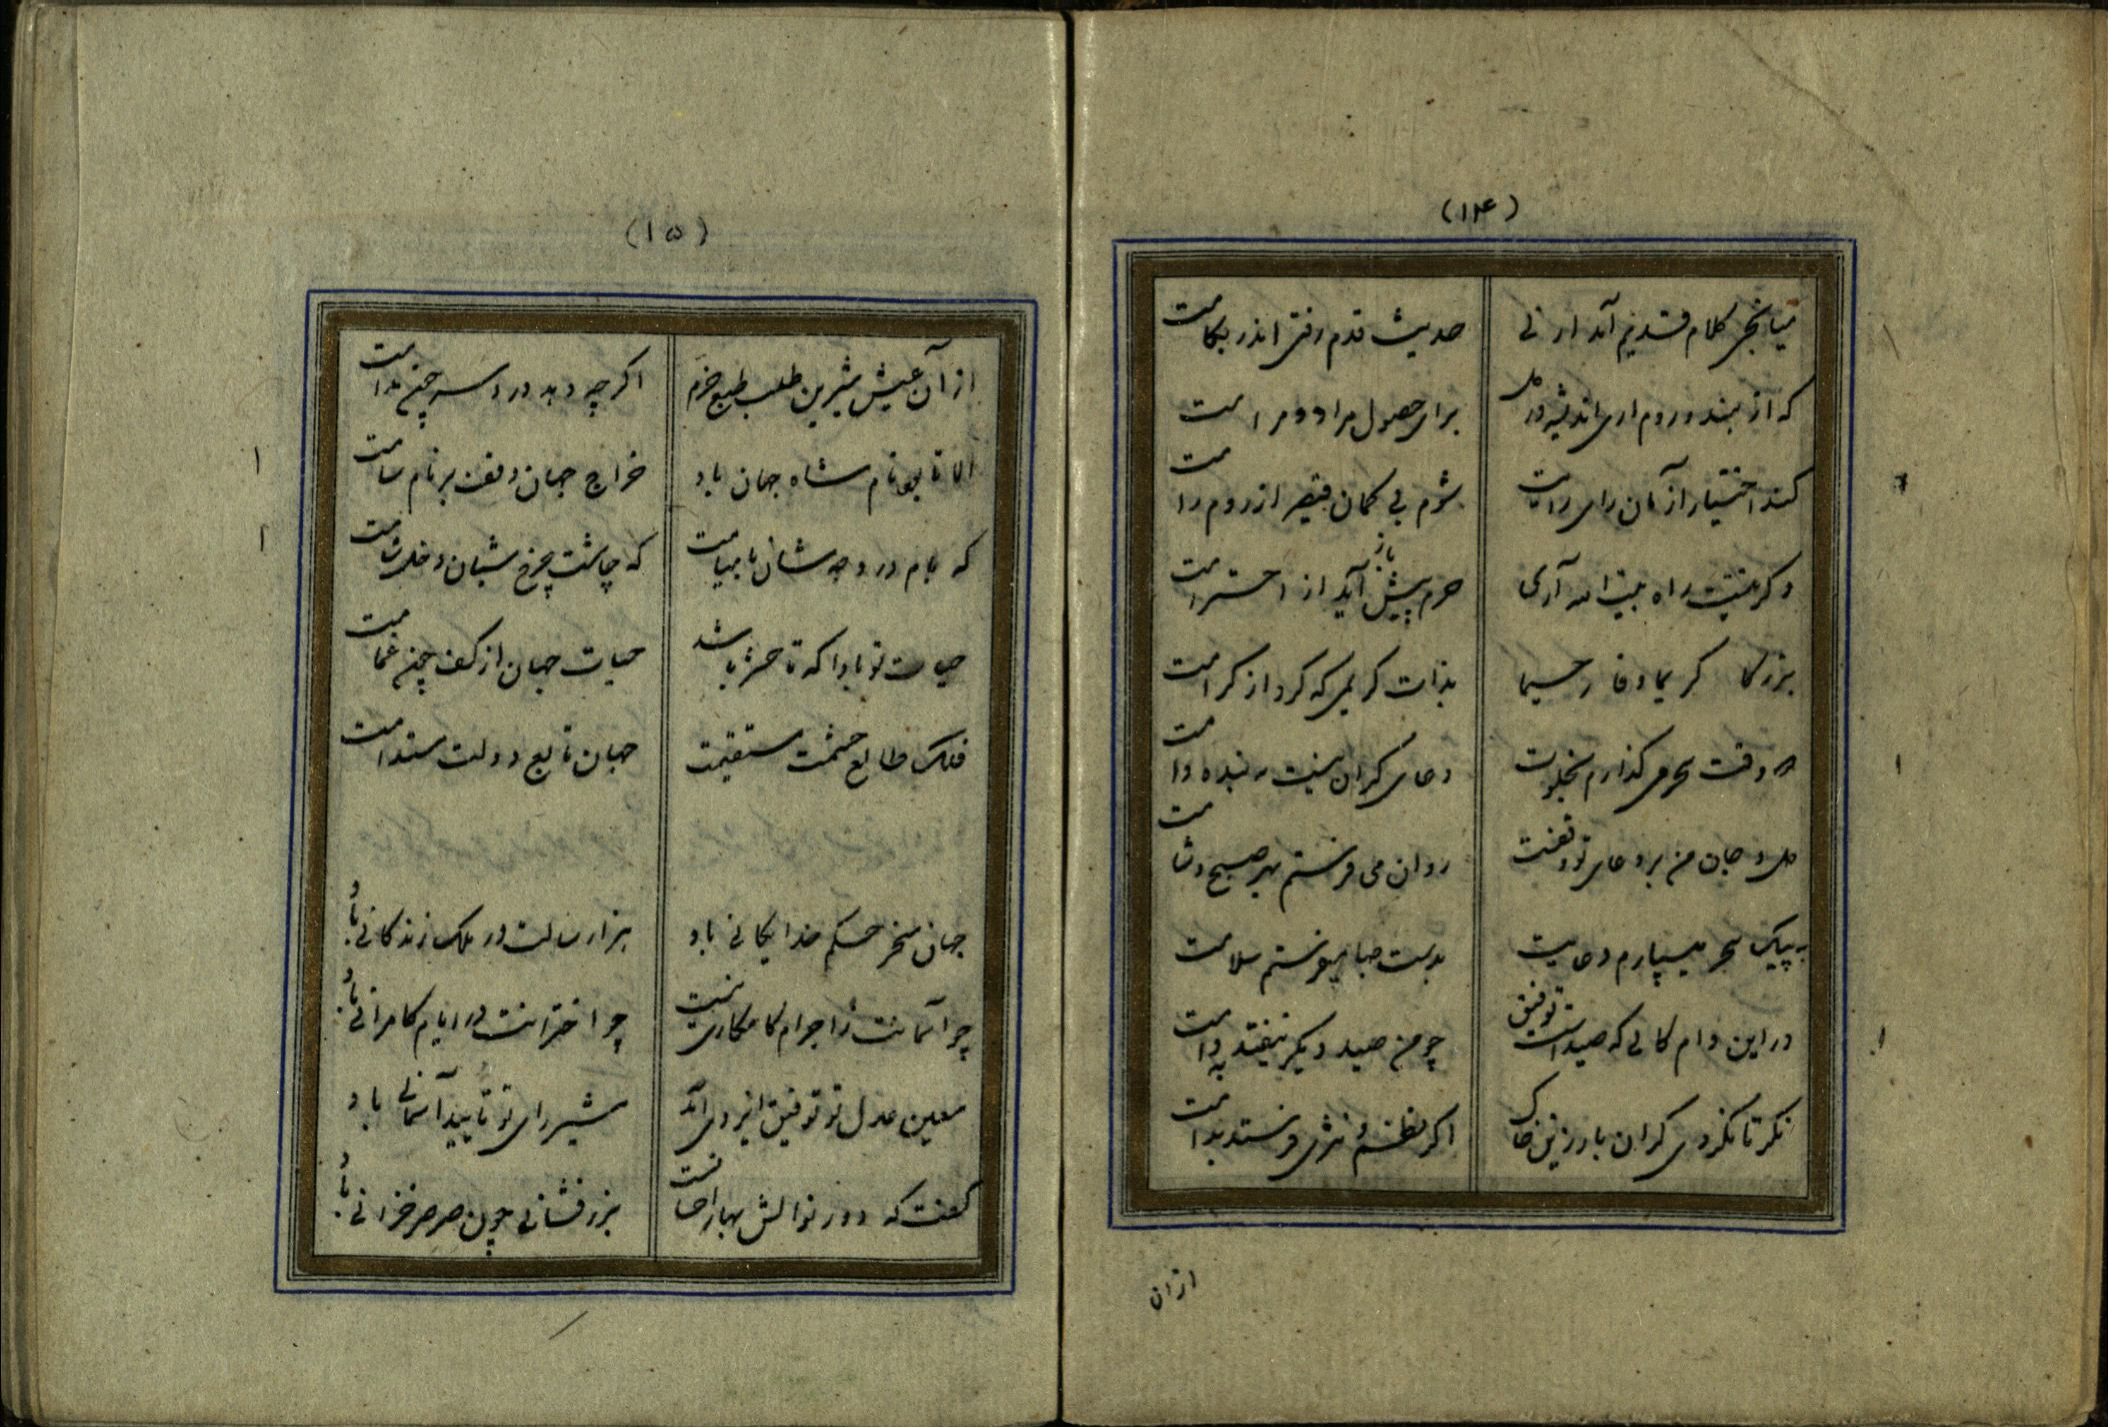 (۱۴)
حدیث قدم رفتی اندر کلامت
برای حصول مراد و مرامت
شوم بی کمان قیصر از روم رامت
وگر نیتت راه بیت الله آری
حرم پیش باز آید از احترامت
بزرگا کریما وفا رحیما
بذات کریمی که کرد از کرامت
دعای کران نیست بنده وامت
دل و جان من بر دعای تو وقفست
روان می فرستم بهر صبح و شامت
به پیک سحر میسپارم دعایت
بدست صبا میفرستم سلامت
در این دام کالی که صیداست توفیق
چو من صید دیگر نیفتد بدامت
اگر نظم و نثری فرستد بدامت
ازان
(۱۵)
از آن عیش شیرین طلب طبع خرم
اگر چه دهد درد سر چین مدامت
الا تا بود نام شاه جهان باد
خراج جهان وقف بر نام سامت
که بام در وجه شان بامیامت
که چاشت چرخ شبان و خلد شامت
حیات تو بادا که تا حشر باشد
حیات جهان از کف چون غمامت
فلک طالع حشمت مستقیمت
جهان تابع دولت مستدامت
جهان مسخر حکم خدایگانی باد
هزار سالت در ملک زندگانی باد
چو آسمانت ز اجرام کامکاری نیست
چو اخترانت در ایام کامرانی باد
معین عدل تو توفیق ایزدی آمد
مشیر رای تو تایید آسمانی باد
کفت که دور نوالش بهار احسانست
بزر فشانی چون صرصر خزانی باد